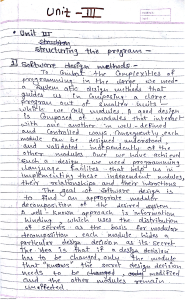 Unit - III
• Unit III
Structuring the program -
1) Software design methods -
To combat the complexities of
programming in the large we need
a systematic design methods that
guides us in composing a large
program out of smaller units -
which we call modules. A good design
is composed of modules that interact
with one another in well-defined
and controlled ways. Consequently each
module can be designed, understood
and validated independently of the
other modules. Once we have achieved
such a design we need programming
language facilities that help us in
implementing these independent modules
their relationships and their interactions
The goal of software design is
to find an appropriate modular
decomposition of the desired system
A well-known approach is information
hiding, which uses the distribution
of secrets as the basis for modular
decomposition each module hides a
particular design decision as its secret
the idea is that if a design decision
has to be changed, only the module
that knows the secret design decision
needs to be changed modified
and the other modules remain
unaffected.